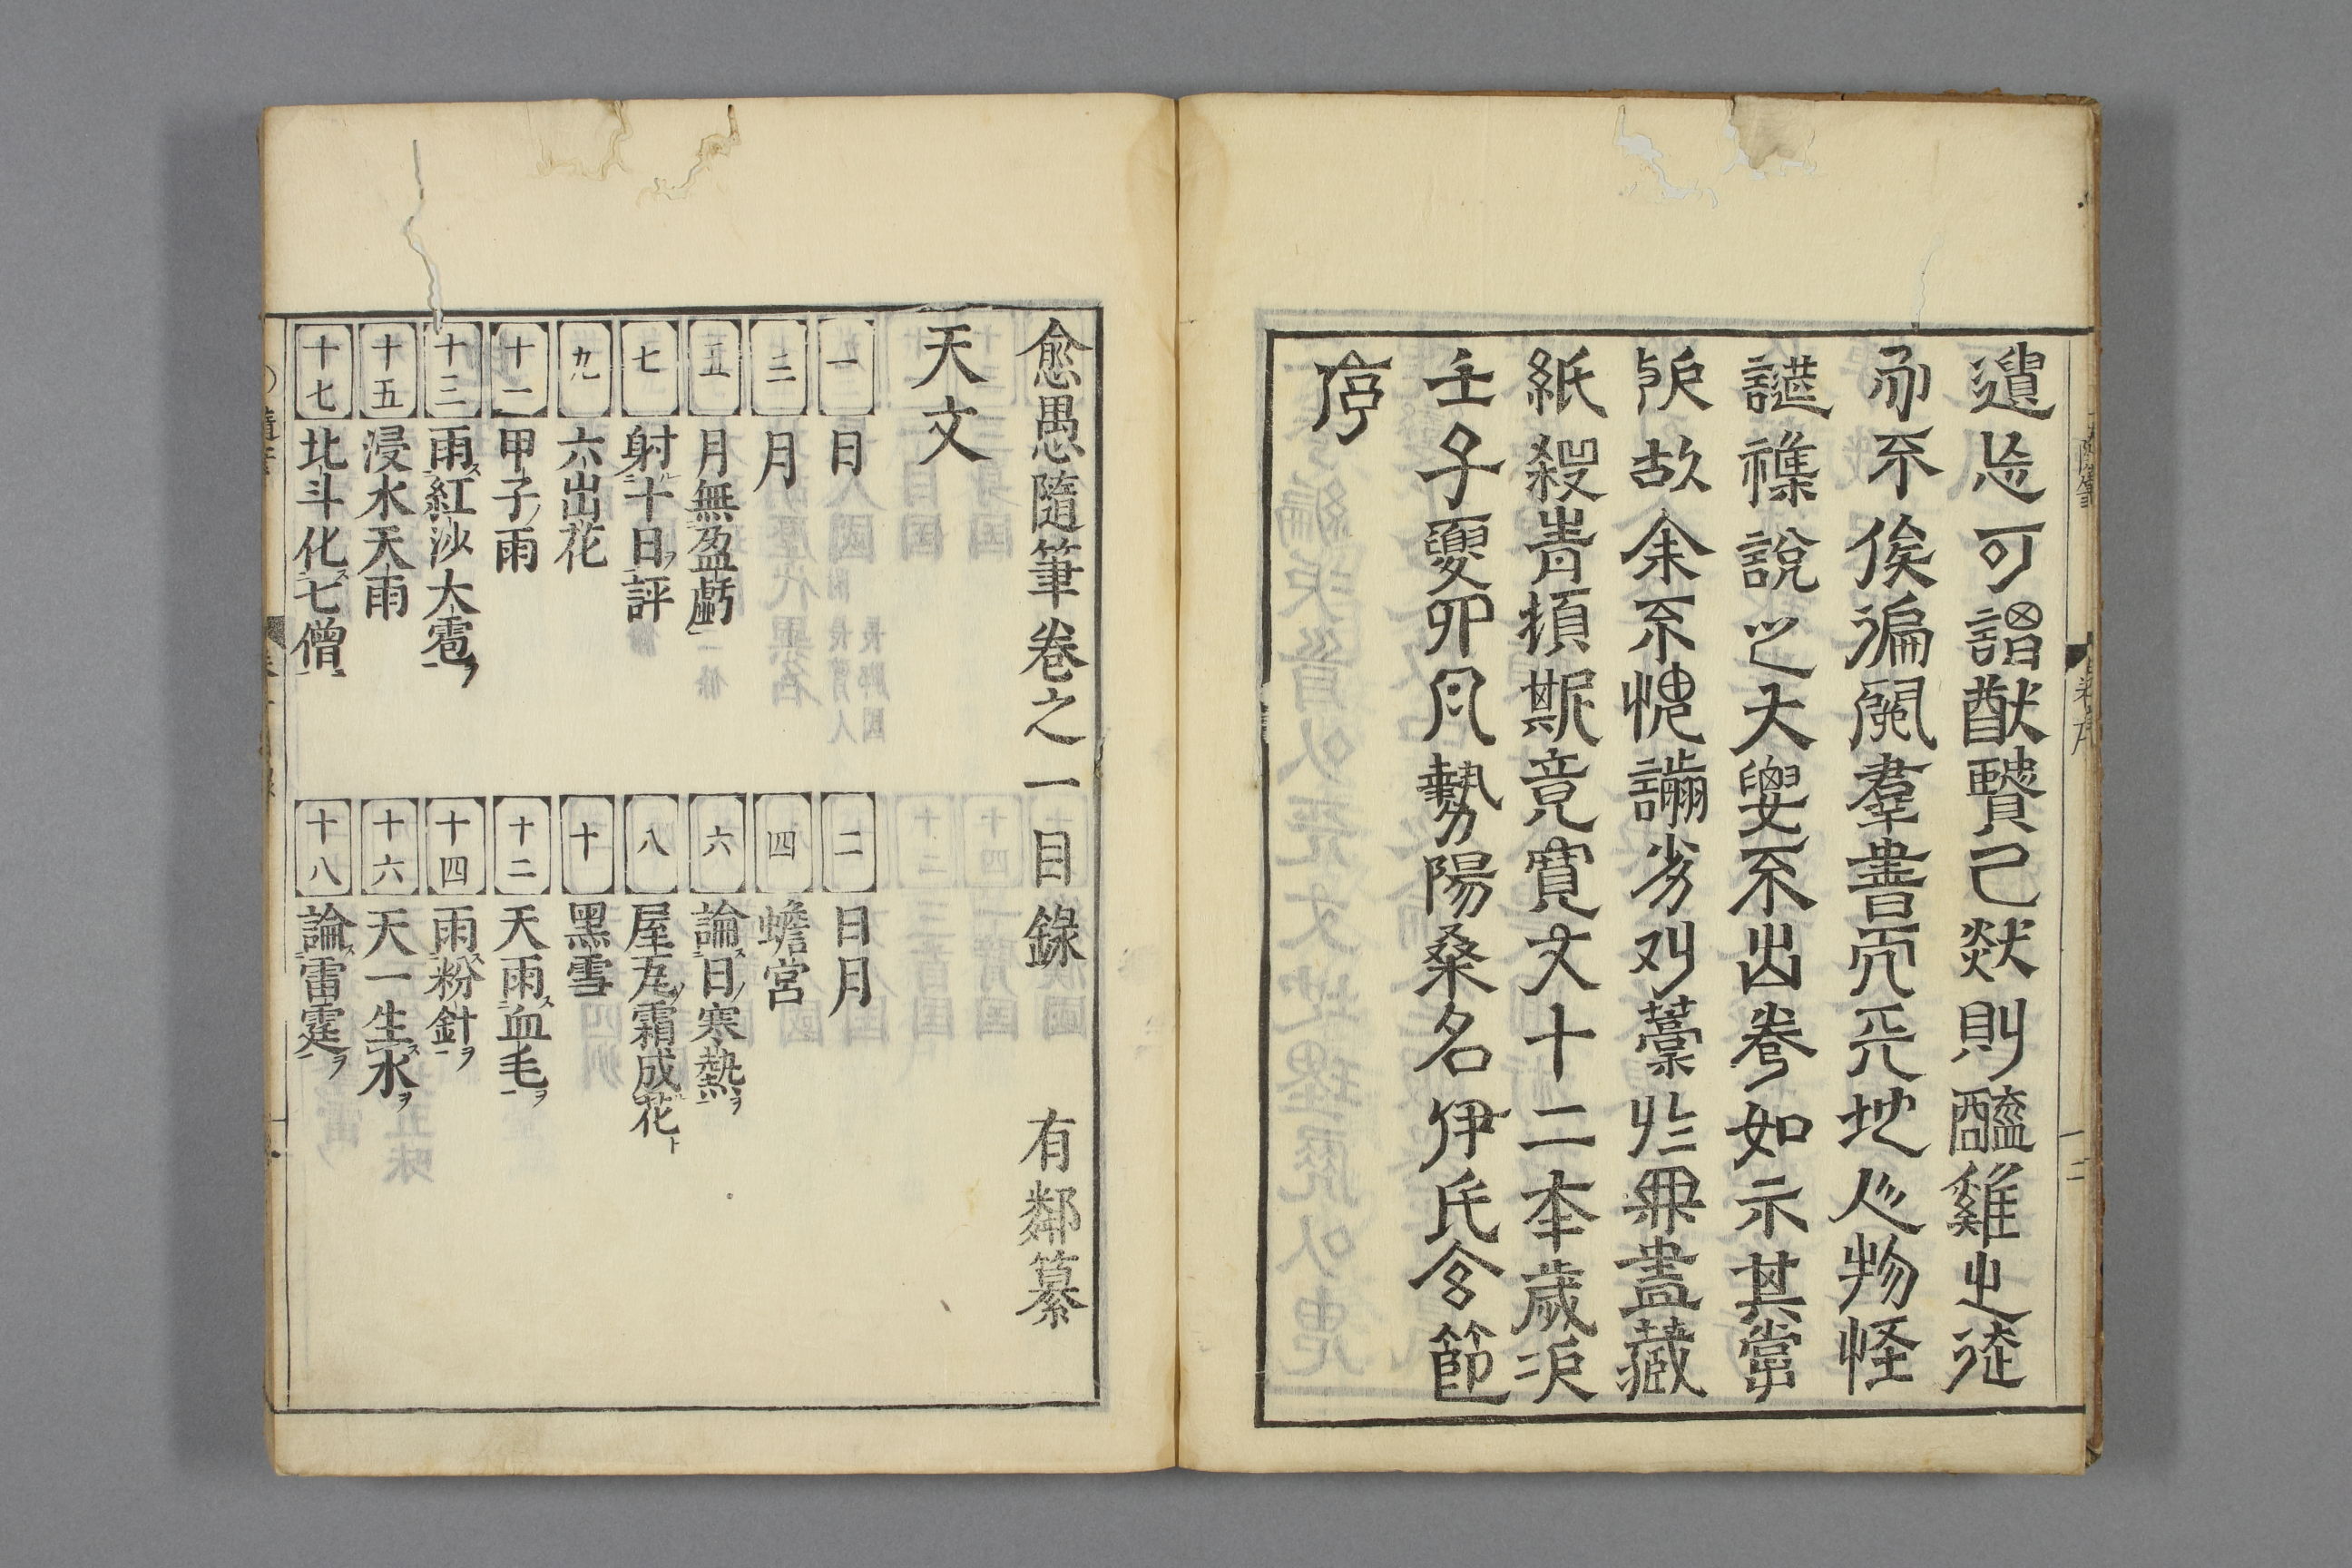 遺忘可謂猷賢已然則醯雞之徒
而不俟徧闚羣書而天地人物怪
誕襍說之大要不出卷如示其掌
所故余不愧譾劣刋藁於毋盡藏
紙殺青頃斯竟寬文十二本歲次
壬子夏卯月勢陽桑名伊氏令節
序
愈愚隨筆卷之一目錄 有鄰纂
天文
一 日
二 日月
三 月
四 蟾宮
五 月無盈虧
六 論日寒熱ヲ
七 射十日ヲ評
八 屋瓦ノ霜成花ト
九 六出花
十 黑雪
十一 甲子ノ雨
十二 天雨ス血毛ヲ
十三 雨ス紅沙大雹ヲ
十四 雨ス粉針ヲ
十五 浸水天雨
十六 天一生ス水ヲ
十七 北斗化ス七僧ニ
十八 論ス雷霆ヲ